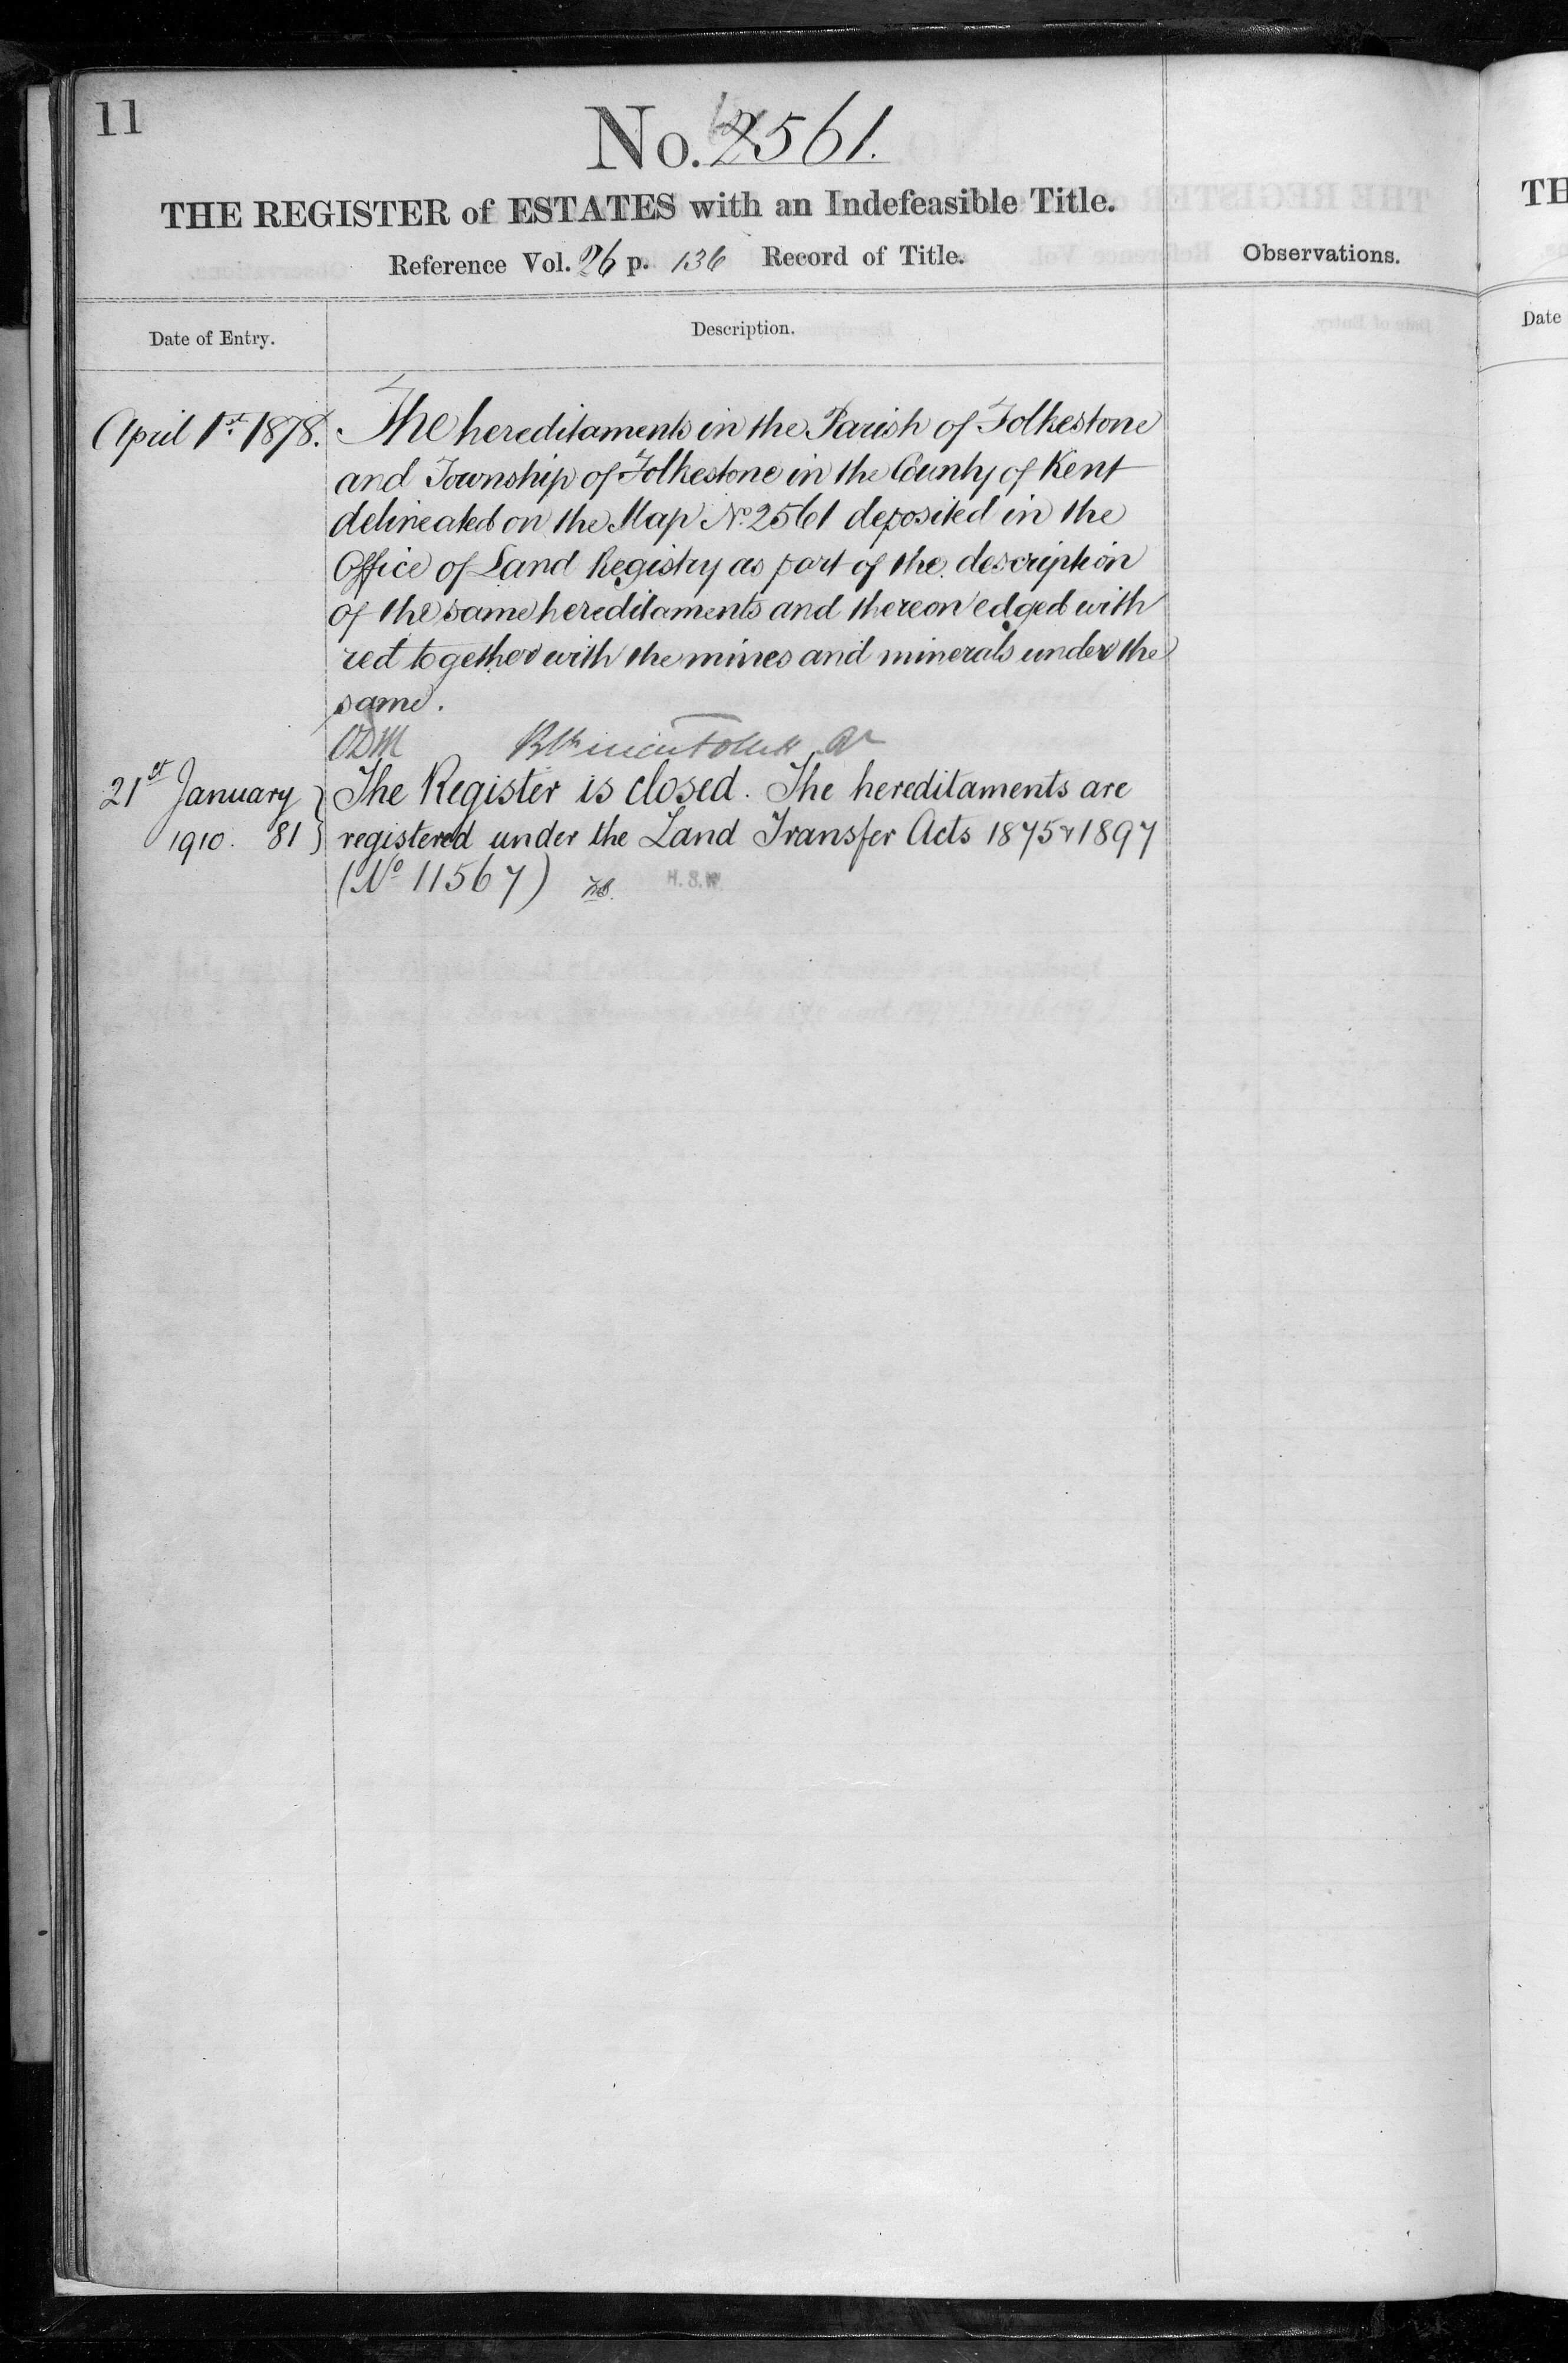 11
No. 2561.
THE REGISTER of ESTATES with an Indefeasible Title.
Reference Vol. 26 p. 136 Record of Title.
Observations.
Date of Entry.
Description.
April 1st 1878. The hereditaments in the Parish of Folkestone
and Township of Folkestone in the County of Kent
delineated on the Map No 2561 deposited in the
Office of Land Registry as part of the description
of the same hereditaments and thereon edged with
red together with the mines and minerals under the
same.
21st January The Register is closed. The hereditaments are
1910. 81 registered under the Land Transfer Acts 1875 & 1897
(No 11567) H.S.W.
TH
Date